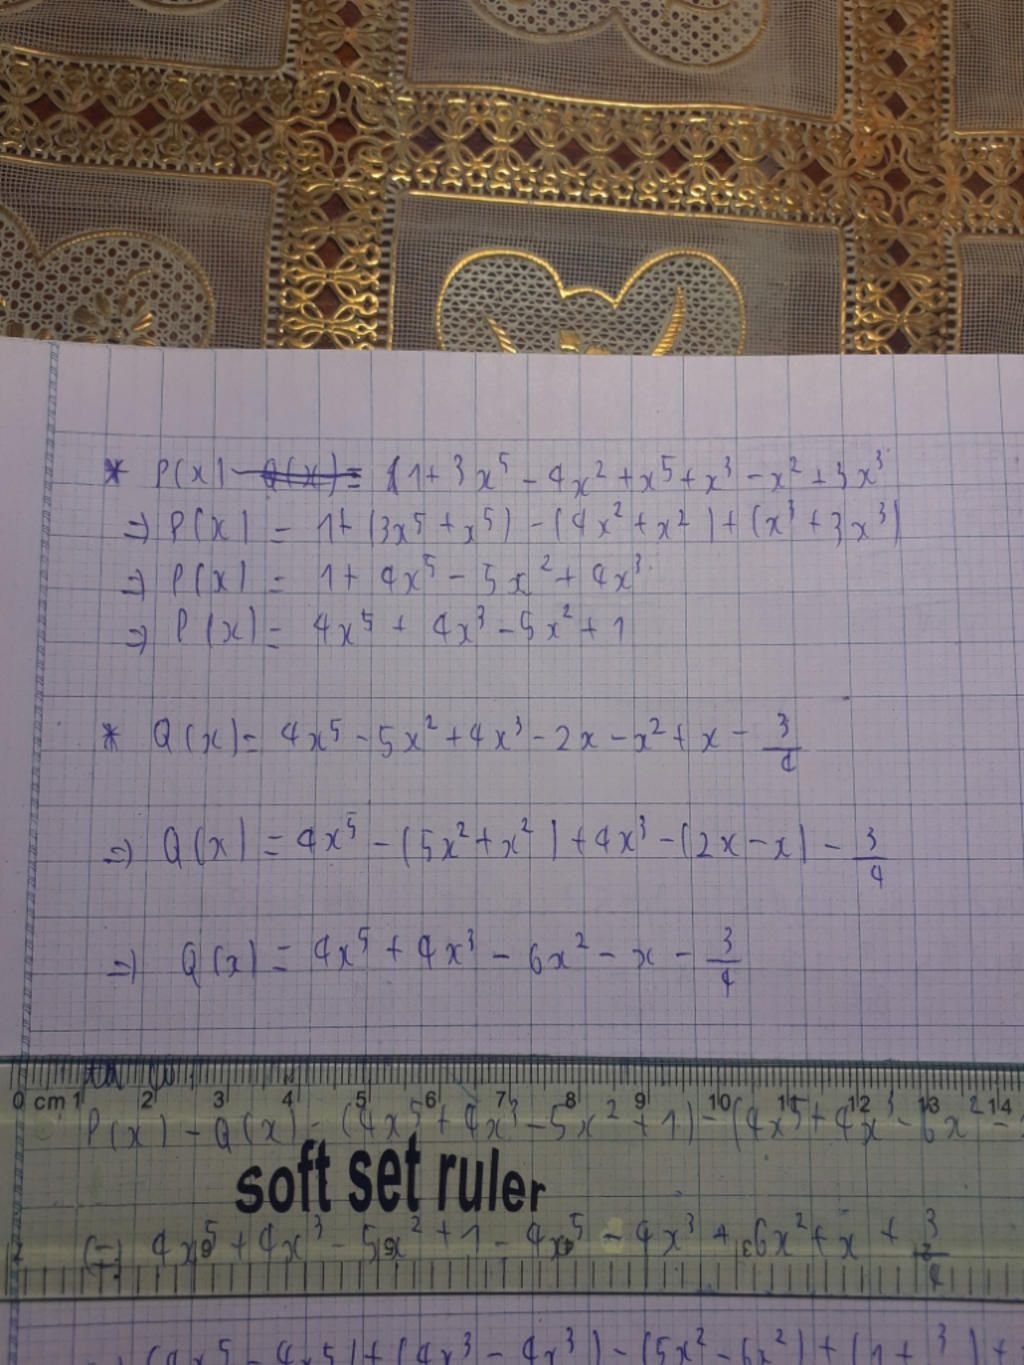 * P(x) - Q(x) = (1 + 3x⁵ - 4x² + x⁵ + x³ - x² + 3x³
=> P(x) = 1 + (3x⁵ + x⁵) - (4x² + x²) + (x³ + 3x³)
=> P(x) = 1 + 4x⁵ - 5x² + 4x³
=> P(x) = 4x⁵ + 4x³ - 5x² + 1
* Q(x) = 4x⁵ - 5x² + 4x³ - 2x - x² + x - 3/4
=> Q(x) = 4x⁵ - (5x² + x²) + 4x³ - (2x - x) - 3/4
=> Q(x) = 4x⁵ + 4x³ - 6x² - x - 3/4
0 cm 1 2 3 4 5 6 7 8 9 10 11 12 13 14
P(x) - Q(x) = (4x⁵ + 4x³ - 5x² + 1) - (4x⁵ + 4x³ - 6x² -
soft set ruler
(=) 4x⁵ + 4x³ - 5x² + 1 - 4x⁵ - 4x³ + 6x² + x + 3/4
(4x⁵ - 4x⁵) + (4x³ - 4x³) - (5x² - 6x²) + (1 + 3